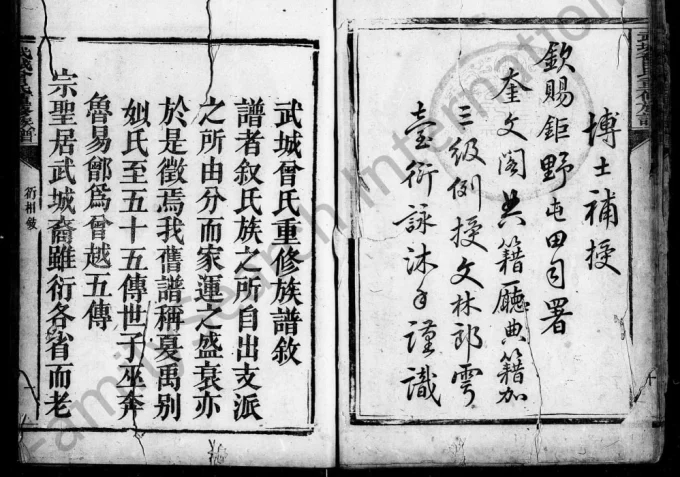 博士補授
欽賜鉅野屯田司署
奎文閣典籍廳典籍加
三級例授文林郎雩
臺衍詠沐手謹識
武城曾氏重修族譜
衍相敘
武城曾氏重修族譜敘
譜者叙氏族之所自出支派
之所由分而家運之盛衰亦
於是徵焉我舊譜稱夏禹别
姒氏至五十五傳世子巫奔
魯易鄫爲曾越五傳
宗聖居武城裔雖衍各省而老
FamilySearch International